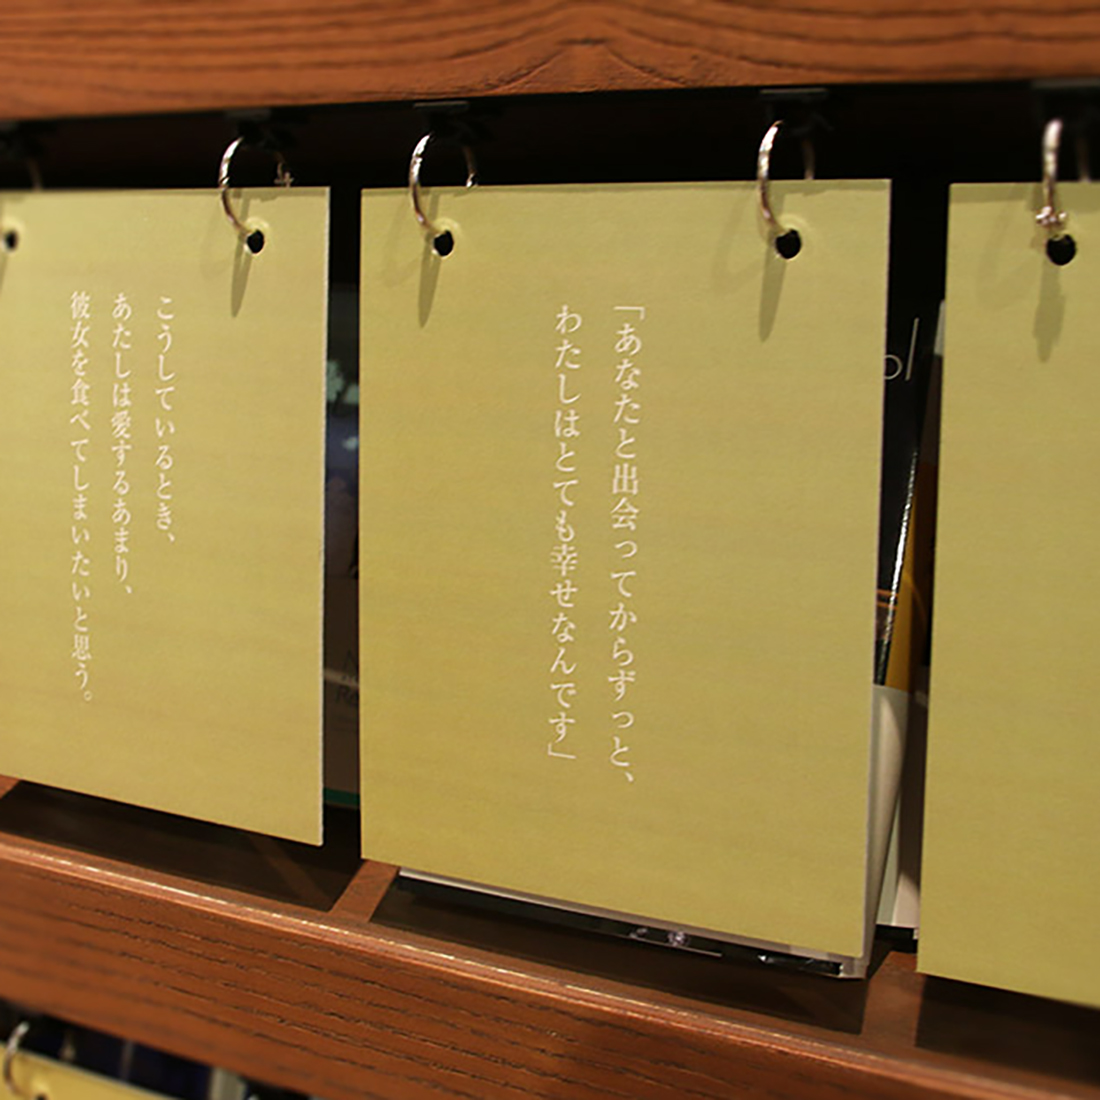 こうしているとき、
あたしは愛するあまり、
彼女を食べてしまいたいと思う。
「あなたと出会ってからずっと、
わたしはとても幸せなんです」